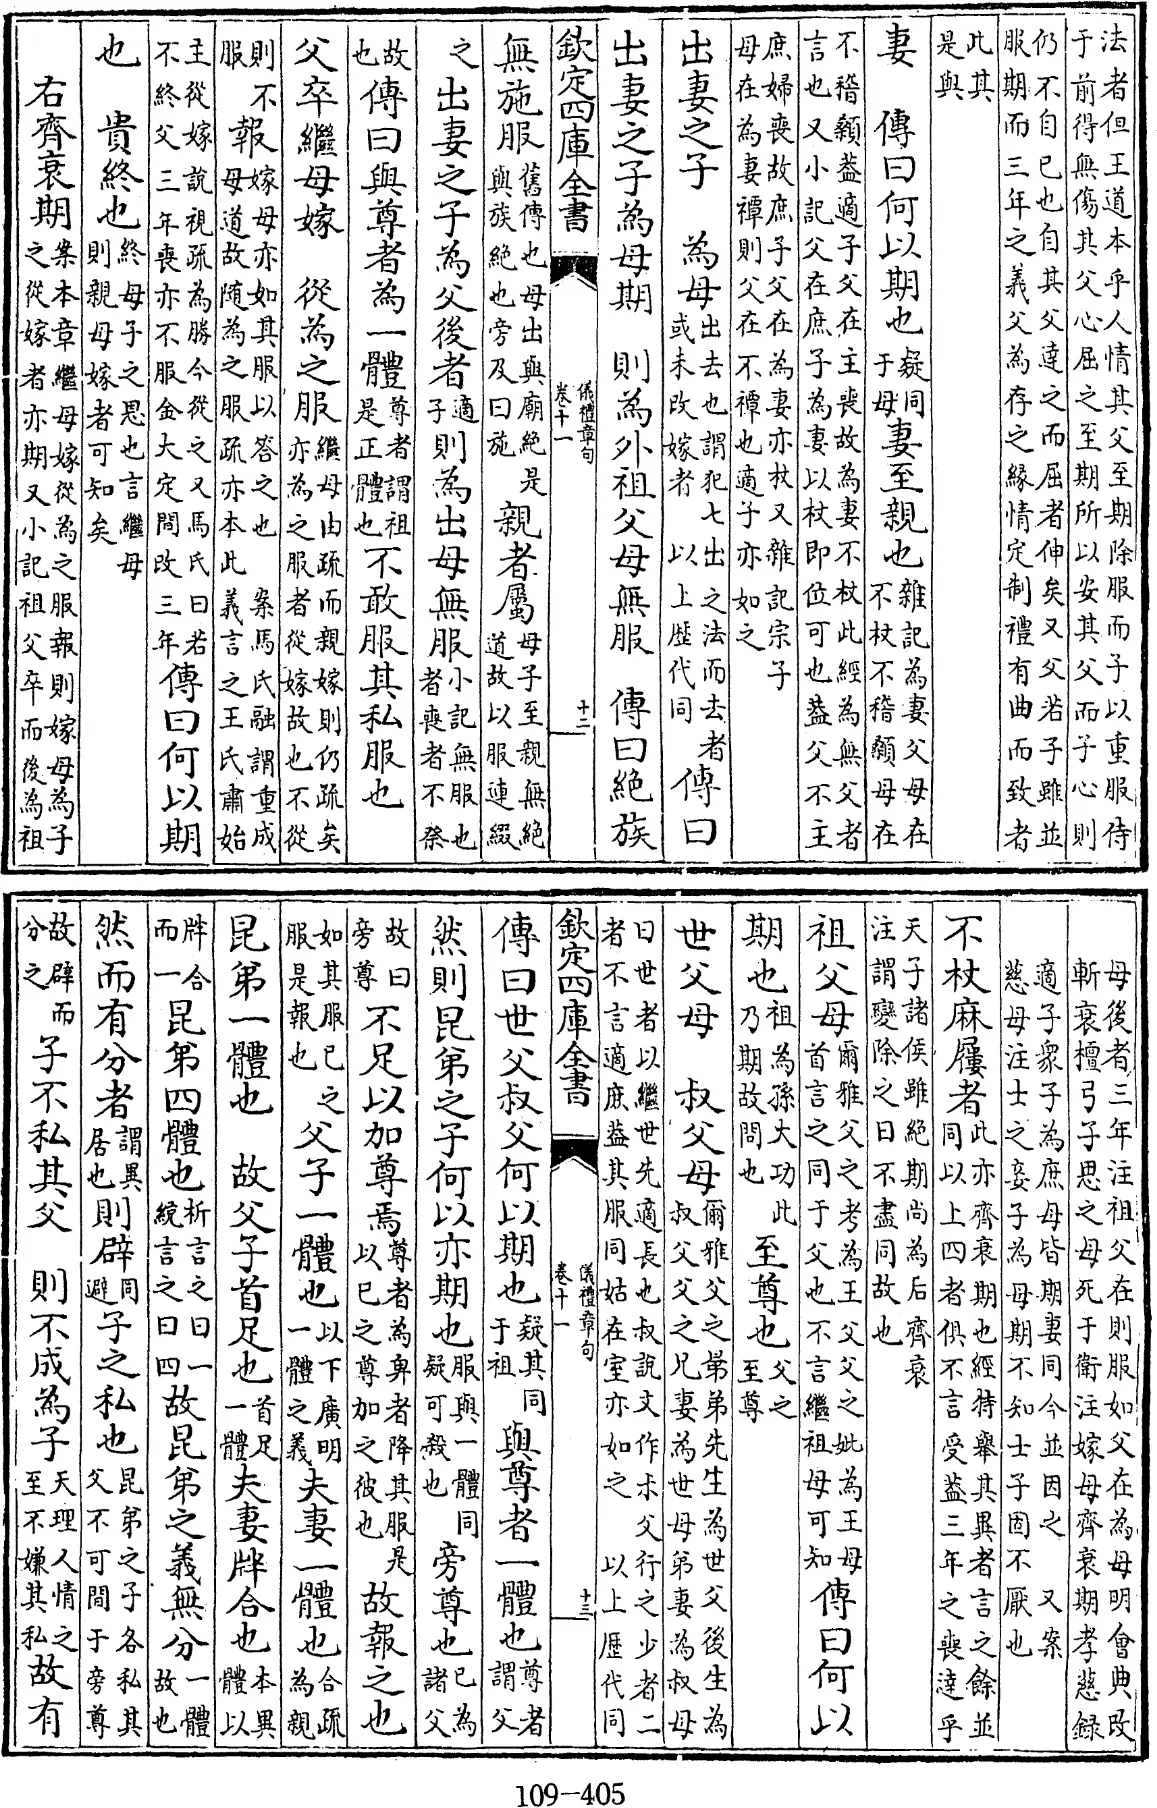 法者但王道本乎人情其父至期除服而子以重服侍
于前得無傷其父心屈之至期所以安其父而子心則
仍不自已也自其父達之而屈者伸矣又父若子雖並
服期而三年之義父為存之緣情定制禮有曲而致者
此其是與
妻　傳曰何以期也疑同于母妻至親也雜記為妻父母在不杖不稽顙母在
不稽顙蓋適子父在主喪故為妻不杖此經為無父者
言也又小記父在庶子為妻以杖即位可也蓋父不主
庶婦喪故庶子父在為妻亦杖又雜記宗子
母在為妻禫則父在不禫也適子亦如之
出妻之子　為母出去也謂犯七出之法而去者或未改嫁者　以上歷代同傳曰
出妻之子為母期　則為外祖父母無服　傳曰絶族
欽定四庫全書　儀禮章句卷十一　十二
無施服舊傳也母出與廟絶是與族絶也旁及曰施親者屬母子至親無絶道故以服連綴
之　出妻之子為父後者適子則為出母無服小記無服也者喪者不祭
故也傳曰與尊者為一體尊者謂祖是正體也不敢服其私服也
父卒繼母嫁　從為之服繼母由疏而親嫁則仍疏矣亦為之服者從嫁故也不從
則不服　報嫁母亦如其服以答之也　案馬氏融謂重成母道故隨為之服疏亦本此義言之王氏肅始
主從嫁說視疏為勝今從之又馬氏曰若不終父三年喪亦不服金大定間改三年傳曰何以期
也　貴終也終母子之恩也言繼母則親母嫁者可知矣
右齊衰期案本章繼母嫁從為之服報則嫁母為子之從嫁者亦期又小記祖父卒而後為祖
母後者三年注祖父在則服如父在為母明會典改
斬衰檀弓子思之母死于衛注嫁母齊衰期孝慈録
適子衆子為庶母皆期妻同今並因之　又案
慈母注士之妾子為母期不知士子固不厭也
不杖麻屨者此亦齊衰期也經特舉其異者言之餘並同以上四者俱不言受蓋三年之喪達乎
天子諸侯雖絶期尚為后齊衰
注謂變除之日不盡同故也
祖父母爾雅父之考為王父父之妣為王母首言之同于父也不言繼祖母可知傳曰何以
期也祖為孫大功此乃期故問也　至尊也父之至尊
世父母　叔父母爾雅父之晜弟先生為世父後生為叔父父之兄妻為世母弟妻為叔母
曰世者以繼世先適長也叔說文作尗父行之少者二
者不言適庶蓋其服同姑在室亦如之　以上歷代同
欽定四庫全書　儀禮章句卷十一　十三
傳曰世父叔父何以期也疑其同于祖　與尊者一體也尊者謂父
然則昆弟之子何以亦期也服與一體同疑可殺也　旁尊也已為諸父
故曰旁尊　不足以加尊焉尊者為卑者降其服是以已之尊加之彼也　故報之也
如其服已之服是報也　父子一體也以下廣明一體之義夫妻一體也合疏為親
昆弟一體也　故父子首足也首足一體夫妻牉合也本異體以
牉合而一昆弟四體也析言之曰一統言之曰四故昆弟之義無分一體故也
然而有分者謂異居也則辟同避子之私也昆弟之子各私其父不可間于旁尊
故辟而分之　子不私其父　則不成為子天理人情之至不嫌其私故有
109-405